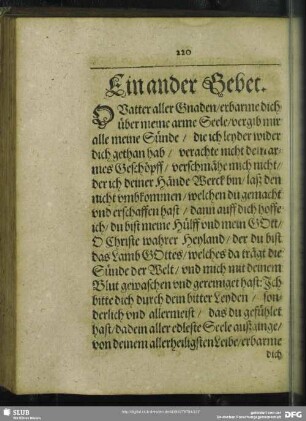 220
Ein ander Gebet.
O Vatter aller Gnaden/erbarme dich
über meine arme Seele/vergib mir
alle meine Sünde / die ich leyder wider
dich gethan hab / verachte nicht dein ar-
mes Geschöpff / verschmähe mich nicht/
der ich deiner Hände Werck bin/ laß den
nicht vmbkommen/ welchen du gemacht
vnd erschaffen hast / dann auff dich hoffe
ich/ du bist meine Hülff vnd mein GOtt/
O Christe wahrer Heyland/ der du bist
das Lamb GOttes/ welches da trägt die
Sünde der Welt/ vnd mich mit deinem
Blut gewaschen vnd gereiniget hast: Ich
bitte dich durch dein bitter Leyden / son-
derlich vnd allermeist / das du gefühlet
hast/ da dein aller edleste Seele außgienge/
von deinem allerheiligsten Leibe/ erbarme
dich
SLUB
DFG